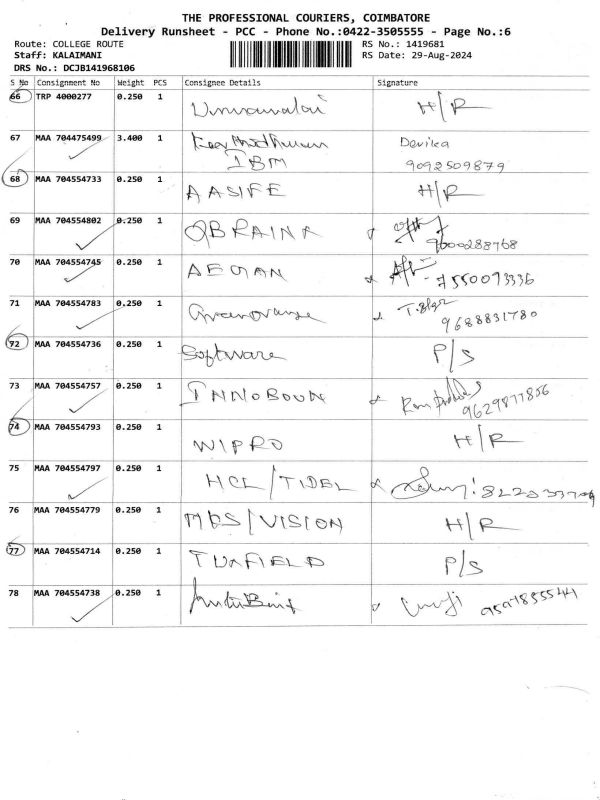 THE PROFESSIONAL COURIERS, COIMBATORE
Delivery Runsheet - PCC - Phone No.:0422-3505555 - Page No.:6
Route: COLLEGE ROUTE
RS No.: 1419681
Staff: KALAIMANI
RS Date: 29-Aug-2024
DRS No.: DCJB141968106
S No Consignment No Weight PCS Consignee Details Signature
66 TRP 4000277 0.250 1 H/R
67 MAA 704475499 3.400 1 Devika
IBM 9092509879
68 MAA 704554733 0.250 1 AASIFE H/R
69 MAA 704554802 0.250 1 QBRAINR
9600288768
70 MAA 704554745 0.250 1 AEGAN 7550093336
71 MAA 704554783 0.250 1 Greenorange
9688831780
72 MAA 704554736 0.250 1 Software P/S
73 MAA 704554757 0.250 1 INNOBOUN
9629877856
74 MAA 704554793 0.250 1 WIPRO H/R
75 MAA 704554797 0.250 1 HCL/TIDEL
76 MAA 704554779 0.250 1 MKS/VISION H/R
77 MAA 704554714 0.250 1 TUXFIELD P/S
78 MAA 704554738 0.250 1